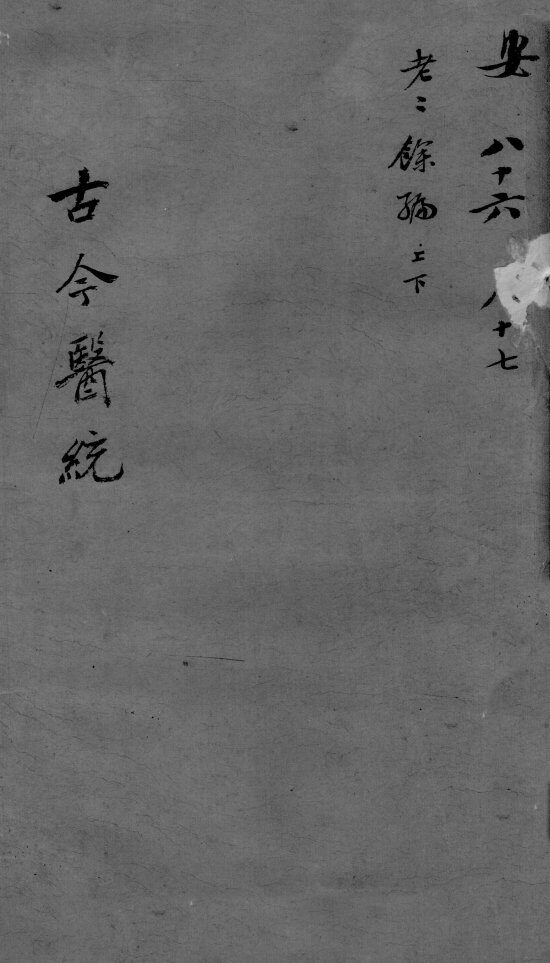 八十六 八十七
老〻餘編 上下
古今醫統